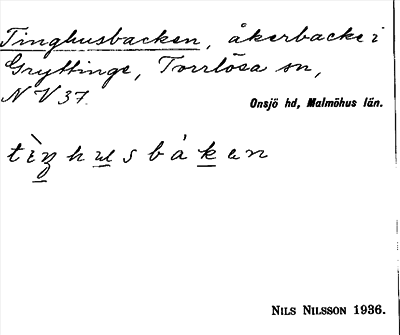 Tinghusbacken, åkerbacke i
Gryttinge, Torrlösa sn,
NV 37.
Onsjö hd, Malmöhus län.
tìŋhusbákan
NILS NILSSON 1936.